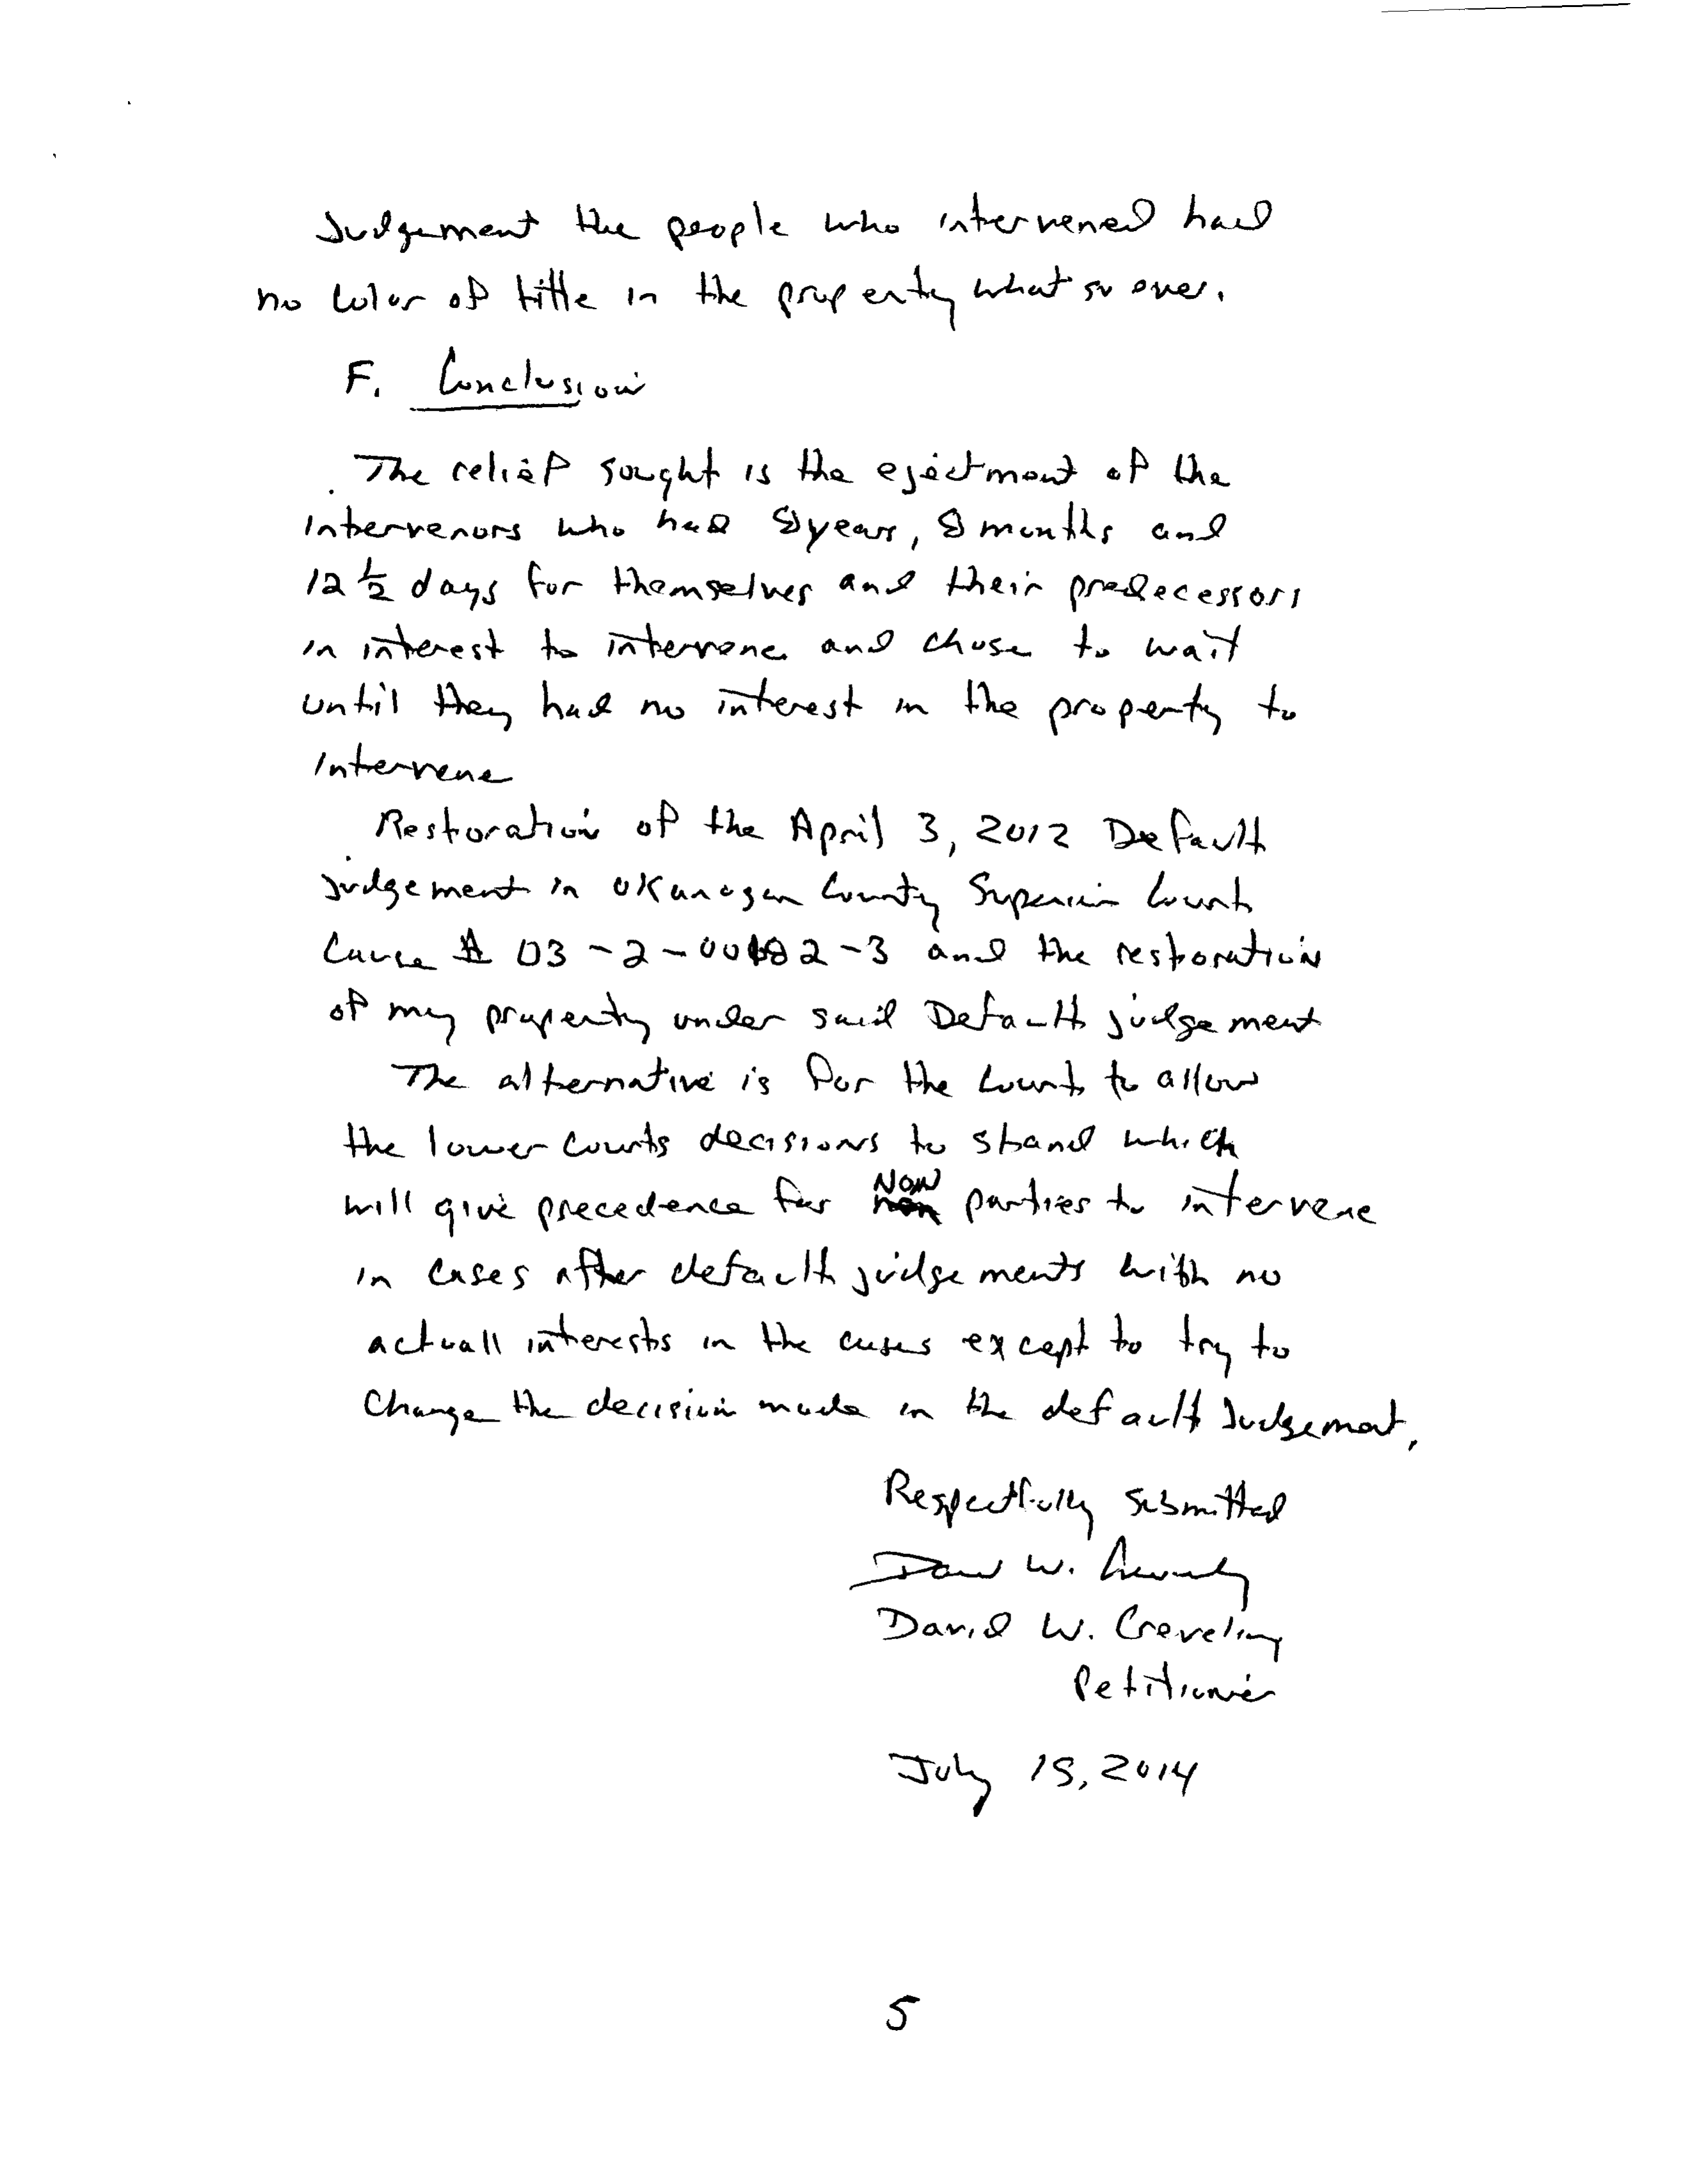 Judgement the people who intervened had
no color of title in the property what so ever.
F. Conclusion
The relief sought is the ejectment of the
intervenors who had 8 years, 8 months and
12 1/2 days for themselves and their predecessors
in interest to intervene and chose to wait
until they had no interest in the property to
intervene
Restoration of the April 3, 2012 Default
judgement in Okanogan County Superior Court
Cause # 03-2-00 2-3 and the restoration
of my property under said Default judgement
The alternative is for the Court to allow
the lower courts decisions to stand which
will give precedence for NON parties to intervene
in cases after default judgements with no
actuall interests in the cases except to try to
Change the decision made in the default Judgement.
Respectfully submitted
David W. Creveling
Petitioner
July 15, 2014
5